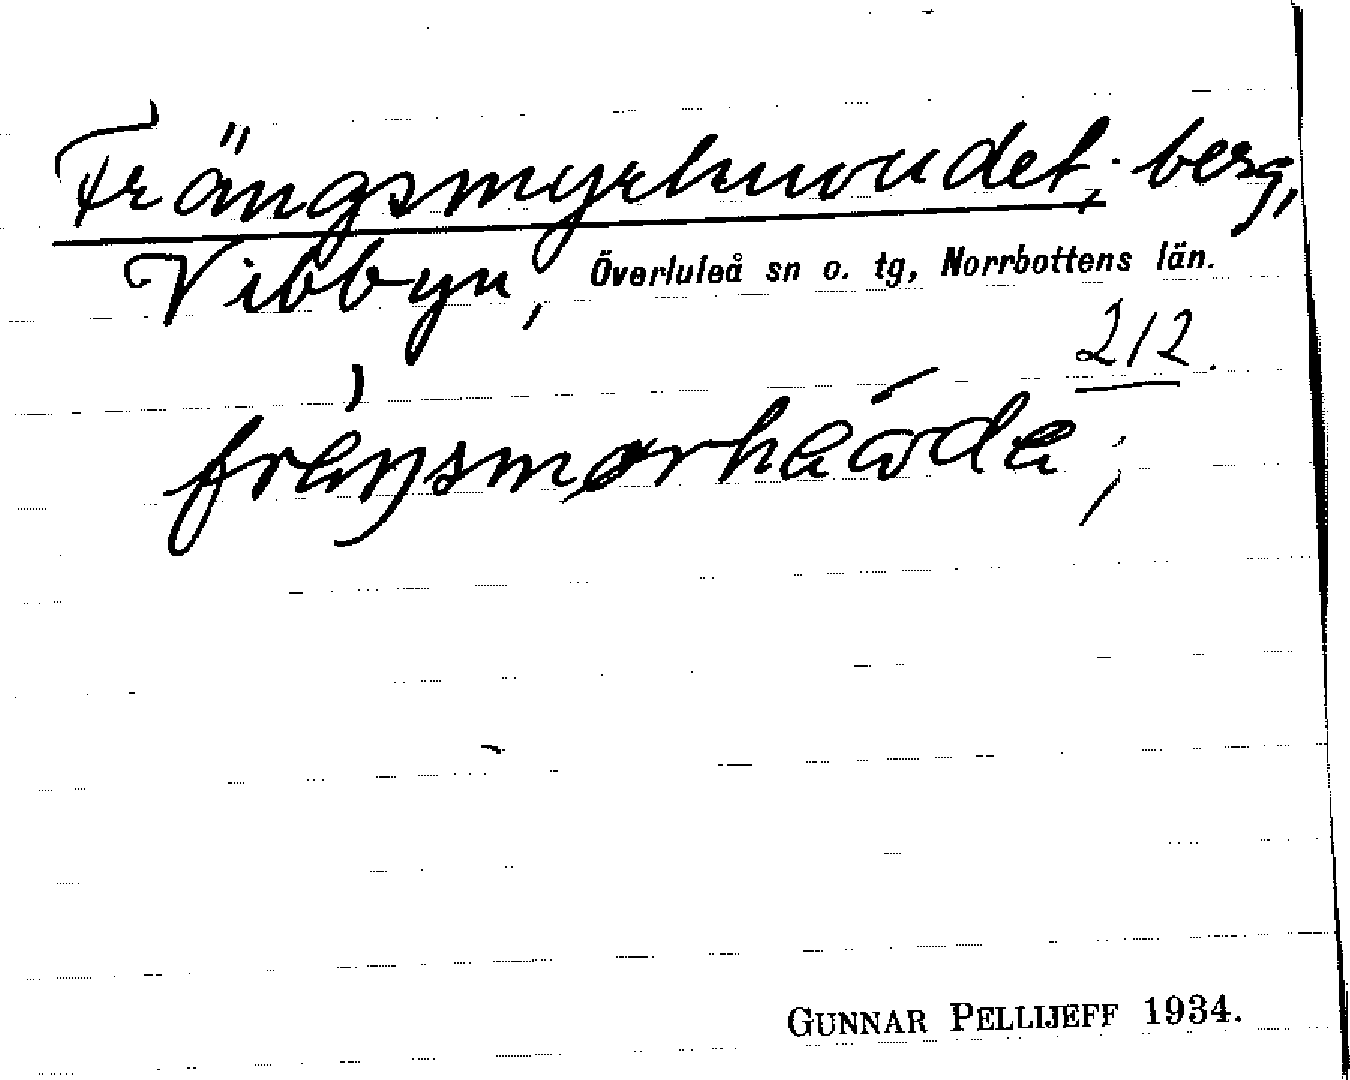 Frängsmyrhuvudet; berg,
Vibbyn, Överluleå sn o. tg, Norrbottens län.
212.
fräŋsmørhæ̀ɷdɑ;
GUNNAR PELLIJEFF 1934.